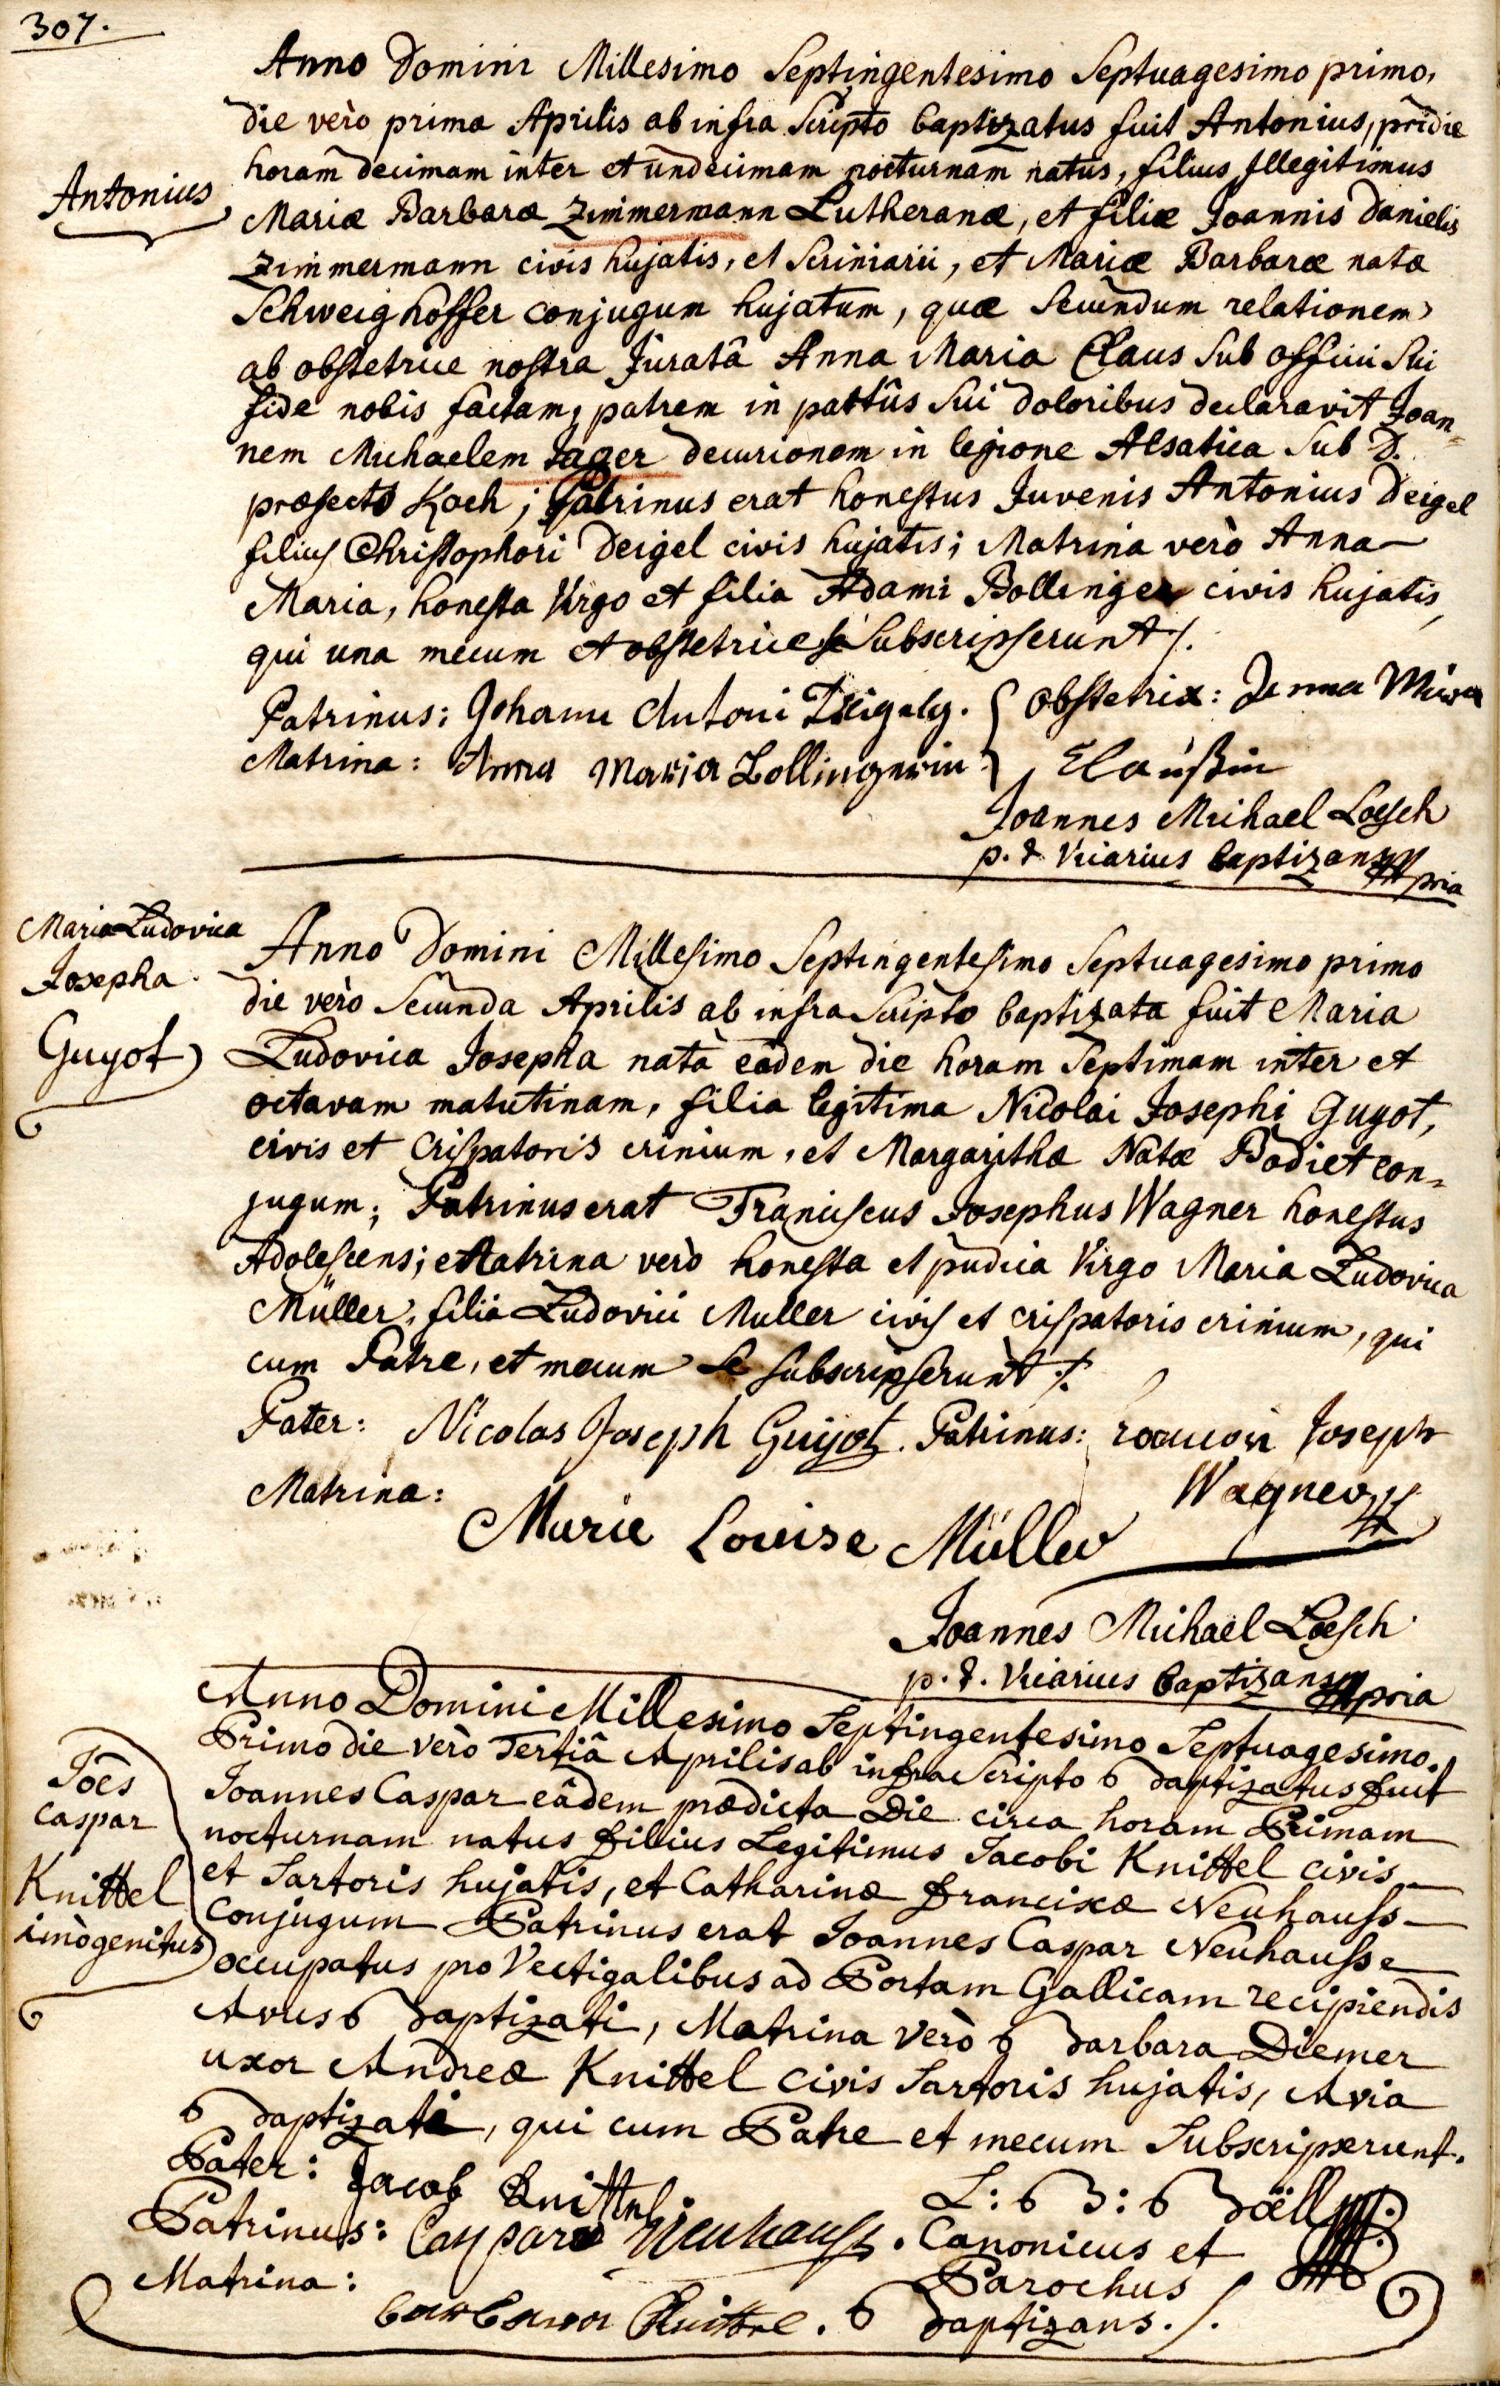 307.
Anno Domini Millesimo Septingentesimo Septuagesimo primo,
die verò prima Aprilis ab infra Scripto baptizatus fuit Antonius, pridie
horam decimam inter et undecimam nocturnam natus, filius Illegitimus
Antonius
Mariæ Barbaræ Zimmermann Lutheranæ, et filiæ Joannis Danielis
Zimmermann civis hujatis, et Scriniarii, et Mariæ Barbaræ natæ
Schweighoffer conjugum hujatum, quæ Secundum relationem
ab obstetrice nostra Juratâ Anna Maria Claus Sub officii Sui
fide nobis factam, patrem in partûs Sui doloribus declaravit Joan=
nem Michaelem Jager decurionem in legione Alsatica Sub D.
præfecto Koch; Patrinus erat honestus Juvenis Antonius Deigel
filius Christophori Deigel civis hujatis; Matrina verò Anna
Maria, honesta Virgo et filia Adami Bollinger civis hujatis,
qui una mecum et obstetrice se Subscripserunt ./.
Patrinus: Johann Antoni . Obstetrix: Anna Maria
Matrina: Anna Maria Bollingerin Claußin
Joannes Michael Loesch
p. t. Vicarius baptizans mpria
Maria Ludovica
Josepha
Guyot
Anno Domini Millesimo Septingentesimo Septuagesimo primo
die verò Secunda Aprilis ab infra Scripto baptizata fuit Maria
Ludovica Josepha nata eâdem die horam Septimam inter et
octavam matutinam, filia legitima Nicolai Josephi Guyot,
civis et Crispatoris crinium, et Margarithæ Natæ Bodiet con=
jugum; Patrinus erat Franciscus Josephus Wagner honestus
Adolescens; Matrina verò honesta et pudica Virgo Maria Ludovica
Müller, filia Ludovici Muller civis et crispatoris crinium, qui
cum Patre, et mecum Se Subscripserunt ./.
Pater: Nicolas Joseph Guijot. Patrinus: Joseph
Wagner
Matrina:
Marie Louise Müller
Joannes Michael Loesch
p. t. Vicarius baptizans mpria
Anno Domini Millesimo Septingentesimo Septuagesimo
Primo die verò Tertiâ Aprilis ab infra Scripto baptizatus fuit
Joēs
Caspar
Knittel
imògenitus
Joannes Caspar eâdem prædicta Die circa horam Primam
nocturnam natus filius Legitimus Jacobi Knittel civis
et Sartoris hujatis, et Catharinæ Franciscæ Neuhauss
Conjugum Patrinus erat Joannes Caspar Neuhausse
occupatus pro Vectigalibus ad Portam Gallicam recipiendis
Avus baptizati, Matrina verò barbara Diemer
uxor Andreæ Knittel Civis Sartoris hujatis, Avia
baptizati, qui cum Patre et mecum Subscripserunt.
Pater: Jacob Knittel
Patrinus: Caspar Neuhauss.
Matrina:
barbara Knittel.
L: B: Boëll
Canonicus et
Parochus
baptizans ./.